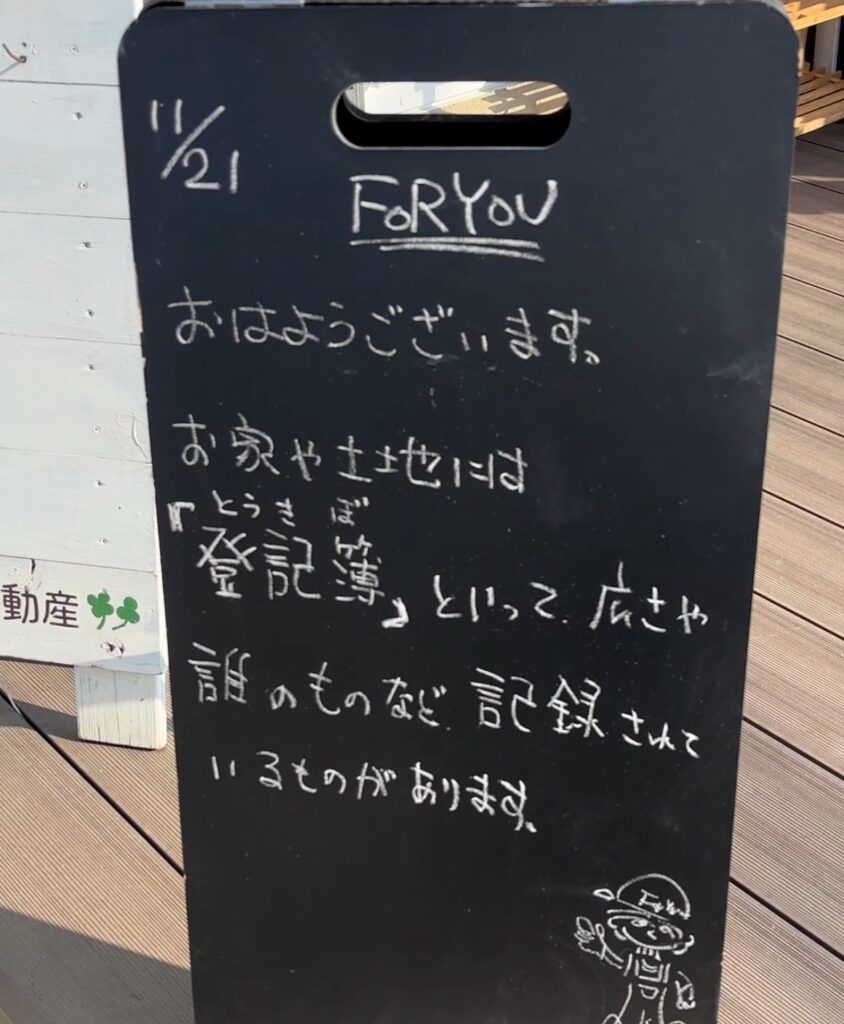 11/21
FORYOU
おはようございます。
お家や土地には
とうきぼ
「登記簿」といって、広さや
誰のものなど、記録されて
いるものがあります。
動産